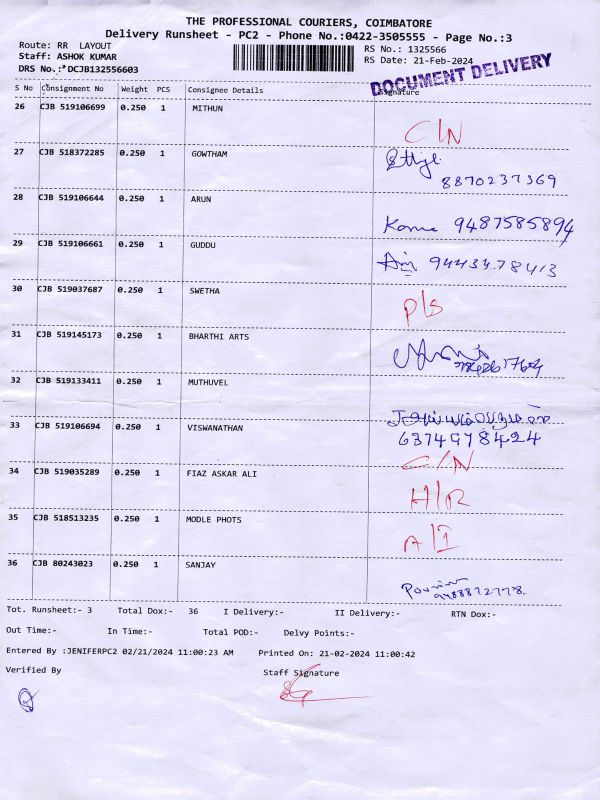 THE PROFESSIONAL COURIERS, COIMBATORE
Delivery Runsheet - PC2 - Phone No.:0422-3505555 - Page No.:3
Route: RR LAYOUT RS No.: 1325566
Staff: ASHOK KUMAR RS Date: 21-Feb-2024
DRS No.: DCJB132556603
DOCUMENT DELIVERY
S No Consignment No Weight PCS Consignee Details Signature
26 CJB 519106699 0.250 1 MITHUN
C/N
27 CJB 518372285 0.250 1 GOWTHAM
8870237369
28 CJB 519106644 0.250 1 ARUN
9487585894
29 CJB 519106661 0.250 1 GUDDU
9443478413
30 CJB 519037687 0.250 1 SWETHA
P/S
31 CJB 519145173 0.250 1 BHARTHI ARTS
32 CJB 519133411 0.250 1 MUTHUVEL
6374978424
33 CJB 519106694 0.250 1 VISWANATHAN
C/N
34 CJB 519035289 0.250 1 FIAZ ASKAR ALI
H/R
35 CJB 518513235 0.250 1 MODLE PHOTS
A/I
36 CJB 80243023 0.250 1 SANJAY
Tot. Runsheet:- 3 Total Dox:- 36 I Delivery:- II Delivery:- RTN Dox:-
Out Time:- In Time:- Total POD:- Delvy Points:-
Entered By :JENIFERPC2 02/21/2024 11:00:23 AM Printed On: 21-02-2024 11:00:42
Verified By Staff Signature